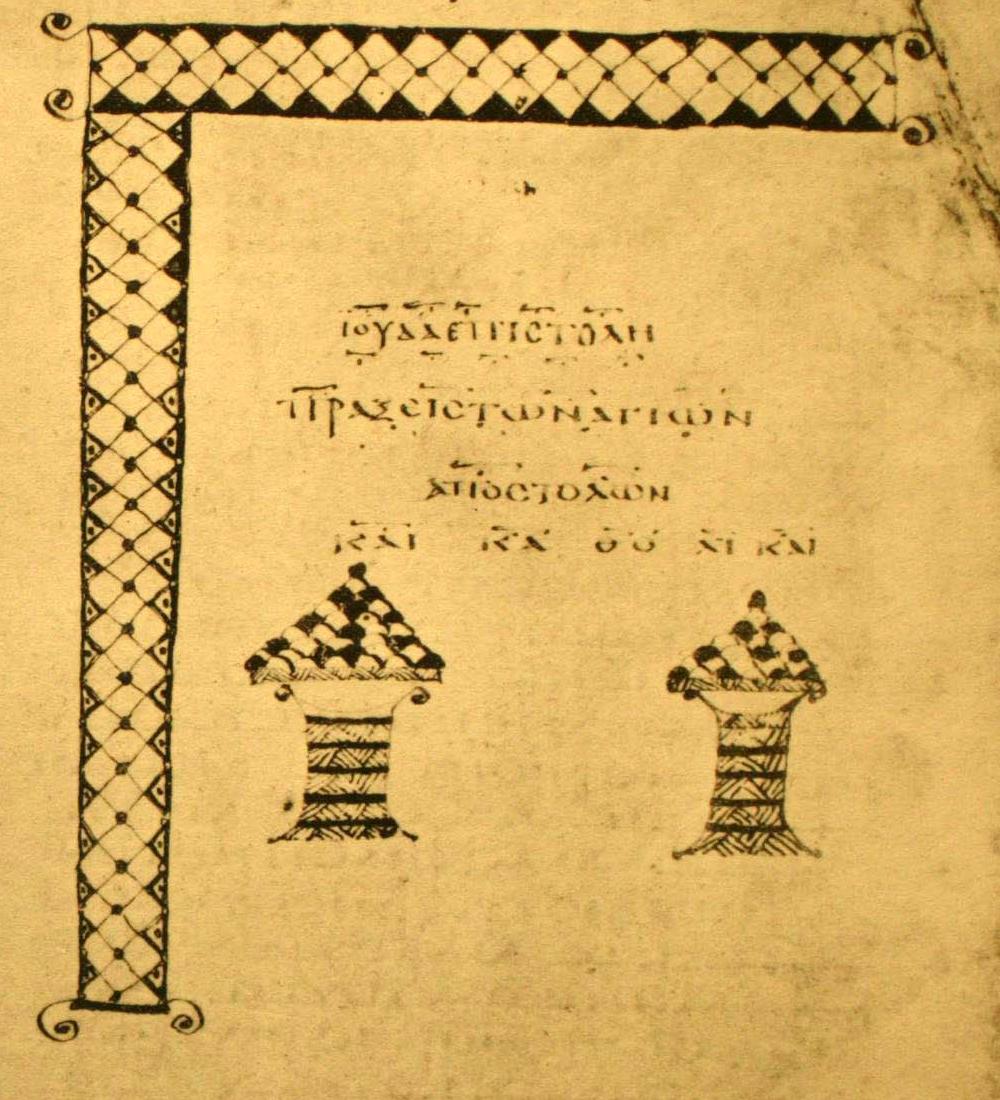 ΙΟΥΔΑ ΕΠΙCΤΟΛΗ
ΠΡΑΞΕΙC ΤΩΝ ΑΓΙΩΝ
ΑΠΟCΤΟΛΩΝ
ΚΑΙ ΚΑΘΟ ΑΙ ΚΑΙ